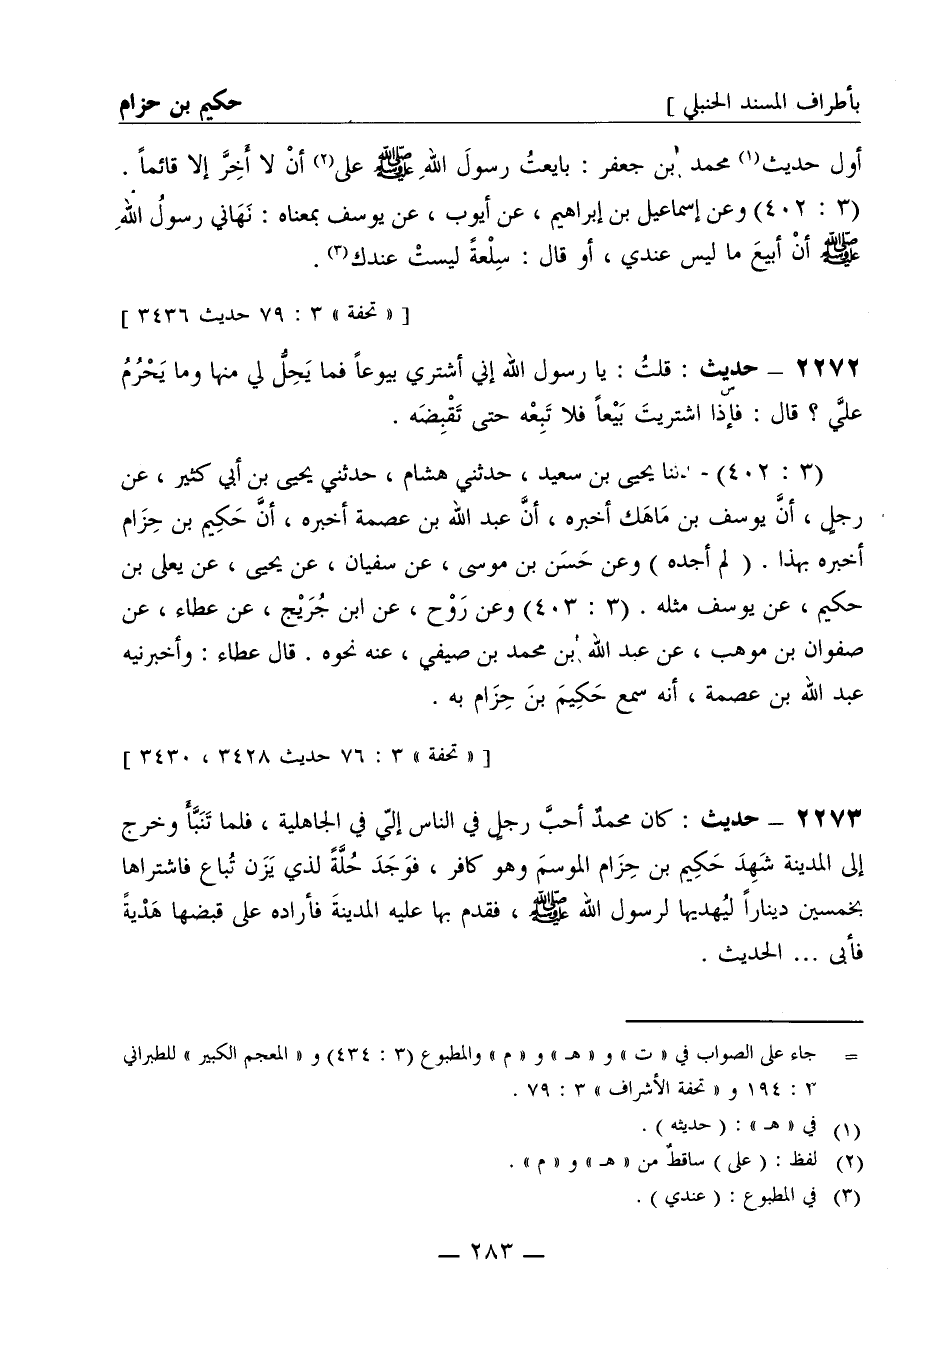 بأطراف المسند الحنبلي ]
حكيم بن حزام
أول حديث(١) محمد بن جعفر : بايعتُ رسولَ اللهِ ﷺ على(٢) أنْ لا أَخِرَّ إلا قائماً .
(٣ : ٤٠٢) وعن إسماعيل بن إبراهيم ، عن أيوب ، عن يوسف بمعناه : نَهَاني رسولُ اللهِ
ﷺ أنْ أبيعَ ما ليس عندي ، أو قال : سِلْعةً ليستْ عندك(٣) .
[ « تحفة » ٣ : ٧٩ حديث ٣٤٣٦ ]
٢٢٧٢ ــ حديث : قلتُ : يا رسول الله إني أشتري بيوعاً فما يَحِلُّ لي منها وما يَحْرُمُ
عليَّ ؟ قال : فإذا اشتريتَ بَيْعاً فلا تَبِعْه حتى تَقْبِضَه .
(٣ : ٤٠٢) - ثنا يحيى بن سعيد ، حدثني هشام ، حدثني يحيى بن أبي كثير ، عن
رجلٍ ، أنَّ يوسف بن مَاهَك أخبره ، أنَّ عبد الله بن عصمة أخبره ، أنَّ حَكِيم بن حِزَام
أخبره بهذا . ( لم أجده ) وعن حَسَن بن موسى ، عن سفيان ، عن يحيى ، عن يعلى بن
حكيم ، عن يوسف مثله . (٣ : ٤٠٣) وعن رَوْح ، عن ابن جُرَيْج ، عن عطاء ، عن
صفوان بن موهب ، عن عبد الله بن محمد بن صيفي ، عنه نحوه . قال عطاء : وأخبرنيه
عبد الله بن عصمة ، أنه سمع حَكِيمَ بنَ حِزَام به .
[ « تحفة » ٣ : ٧٦ حديث ٣٤٢٨ ، ٣٤٣٠ ]
٢٢٧٣ ــ حديث : كان محمدٌ أحبَّ رجلٍ في الناس إليّ في الجاهلية ، فلما تَنَبَّأَ وخرج
إلى المدينة شَهِدَ حَكِيم بن حِزَام الموسمَ وهو كافر ، فوَجَدَ حُلَّةً لذي يَزَن تُباع فاشتراها
بخمسين ديناراً ليُهديها لرسول الله ﷺ ، فقدم بها عليه المدينةَ فأراده على قبضها هَدْيةً
فأبى ... الحديث .
= جاء على الصواب في « ت » و « هـ » و « م » والمطبوع (٣ : ٤٣٤) و « المعجم الكبير » للطبراني
٣ : ١٩٤ و « تحفة الأشراف » ٣ : ٧٩ .
(١) في « هـ » : ( حديثه ) .
(٢) لفظ : ( على ) ساقطٌ من « هـ » و « م » .
(٣) في المطبوع : ( عندي ) .
ــ ٢٨٣ ــ